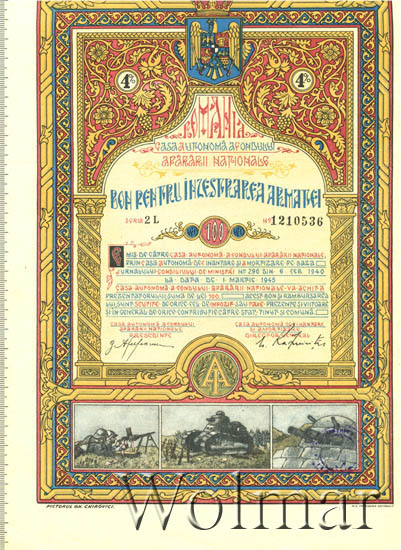 4% 4%
ROMÂNIA
CASA AUTONOMĂ A FONDULUI
APĂRĂRII NAȚIONALE
BON PENTRU INZESTRAREA ARMATEI
SERIA 2 L Nº 1210536
100
EMIS DE CĂTRE CASA AUTONOMĂ A FONDULUI APĂRĂRII NAȚIONALE,
PRIN CASA AUTONOMĂ DE FINANȚARE ȘI AMORTIZARE PE BAZA
JURNALULUI CONSILIULUI DE MINIȘTRI Nº 296 DIN 6 FEB. 1940
LA DATA DE 1 MARTIE 1945
CASA AUTONOMĂ A FONDULUI APĂRĂRII NAȚIONALE VA ACHITA
PREZENTATORULUI SUMA DE LEI 100. ACEST BON ȘI RAMBURSAREA
LUI SUNT SCUTITE DE ORICE FEL DE IMPOZIT SAU TAXE PREZENTE ȘI VIITOARE
ȘI ÎN GENERAL DE ORICE CONTRIBUȚIE CĂTRE STAT, ȚINUT ȘI COMUNĂ.
CASA AUTONOMĂ A FONDULUI CASA AUTONOMĂ DE FINANȚARE
APĂRĂRII NAȚIONALE ȘI AMORTIZARE
PREȘEDINTE DIRECTOR GENERAL
PICTORUL GH. CHIROVICI.
Wolmar